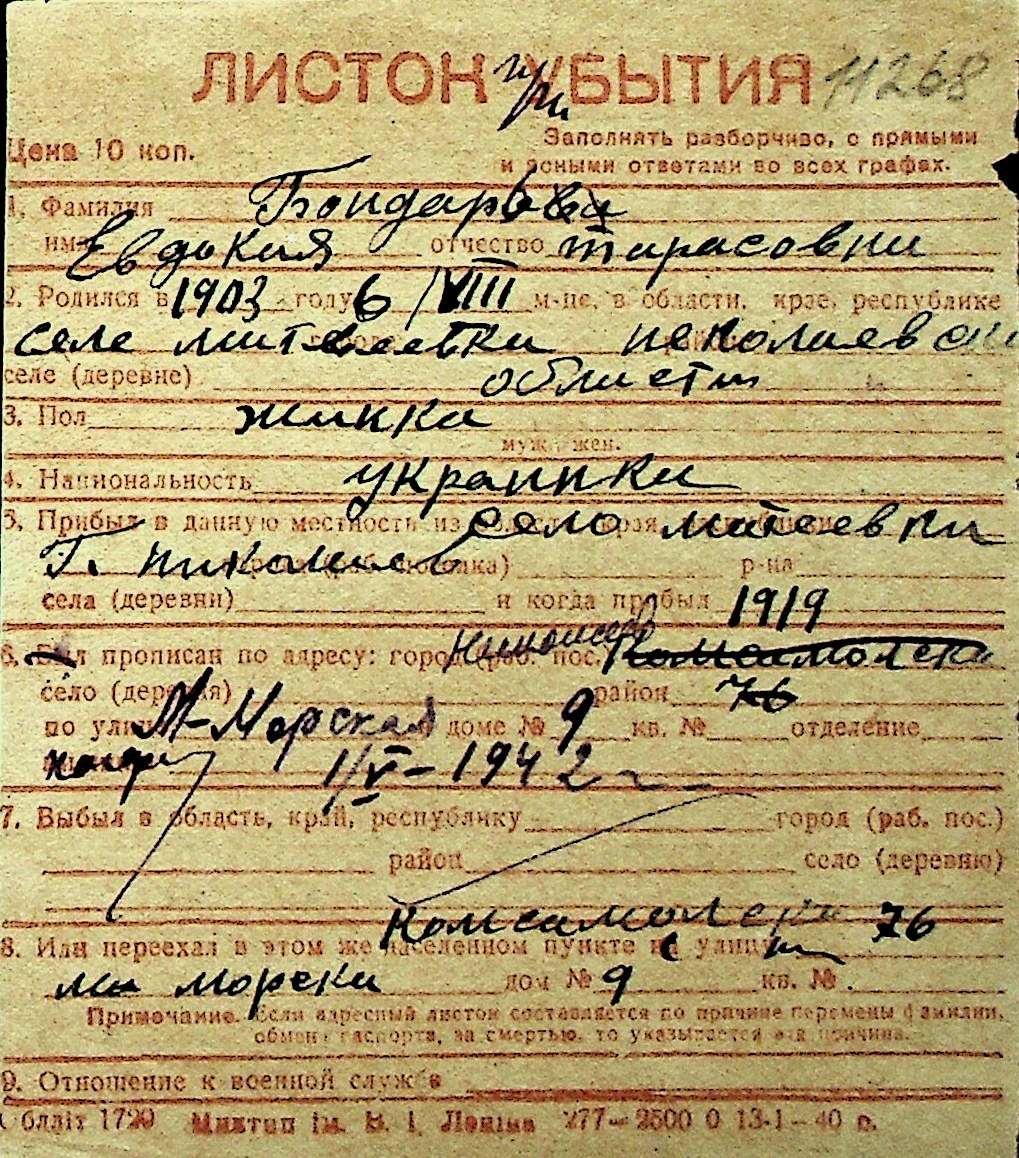 ЛИСТОК при УБЫТИЯ 11268
Цена 10 коп.
Заполнять разборчиво, с прямыми
и ясными ответами во всех графах.
1. Фамилия Бондарева
имя Евдокия отчество тарасовна
2. Родился в 1903 году 6/VIII м-це, в области, крае, республике
селе николаевск
селе (деревне) области
3. Пол жинка
муж. жен.
4. Национальность украинка
5. Прибыл в данную местность из село матеевки
Г. николаев р-на
села (деревни) и когда прибыл 1919
6. Был прописан по адресу: город (раб. пос.) Николаев Комсамолска
село (деревня) район 76
по улице М-Морская доме № 9 кв. № отделение
1/V-1942
7. Выбыл в область, край, республику город (раб. пос.)
район село (деревню)
Комсамолска 76
8. Или переехал в этом же населенном пункте на улицу
м морска дом № 9 кв. №
Примечание. Если адресный листок составляется по причине перемены фамилии,
обмена паспорта, за смертью, то указывается эта причина.
9. Отношение к военной службе
блліт 1720 Миктип ім. В. І. Леніна 277—2500 0 13-1—40 р.